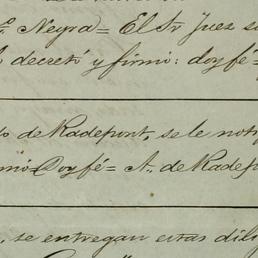 E. Negra = El Sr Juez se
decretó y firmó: doy fé =
o de Radepont, se le noti
mó Doy fé = A. de Radep
, se entregan estas dili